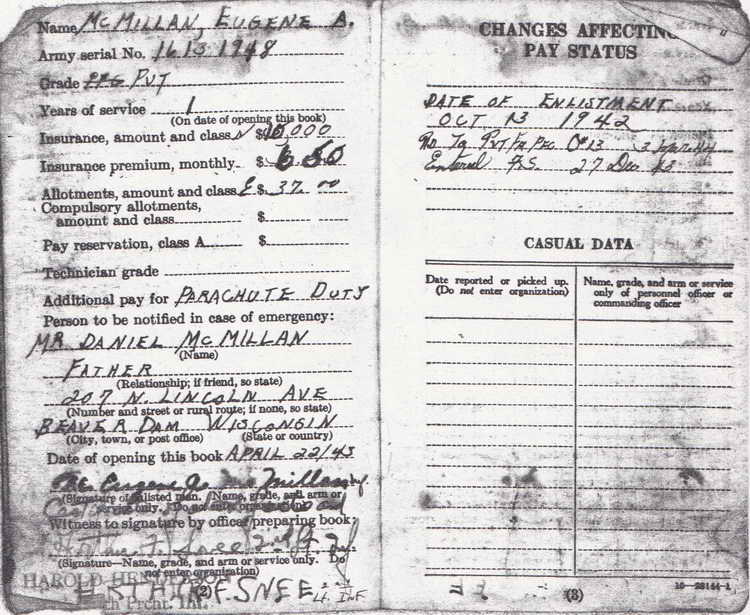 Name McMILLAN, EUGENE A.
Army serial No. 16131948
Grade Pvt
Years of service 1
(On date of opening this book)
Insurance, amount and class N $10,000
Insurance premium, monthly $ 6 50
Allotments, amount and class E $ 37. 00
Compulsory allotments,
amount and class $
Pay reservation, class A $
Technician grade
Additional pay for PARACHUTE DUTY
Person to be notified in case of emergency:
MR. DANIEL McMILLAN
(Name)
FATHER
(Relationship; if friend, so state)
207 N. LINCOLN AVE
(Number and street or rural route; if none, so state)
BEAVER DAM WISCONSIN
(City, town, or post office) (State or country)
Date of opening this book APRIL 22/43
Eugene A. McMillan
(Signature of enlisted man. Name, grade, and arm or
service only. Do not enter organization)
Witness to signature by officer preparing book:
F. Snee 2nd Lt
(Signature—Name, grade, and arm or service only. Do
not enter organization)
HAROLD
(2)
F. SNEE
Prcht. Inf.
CHANGES AFFECTING
PAY STATUS
DATE OF ENLISTMENT
OCT 13 1942
27 Dec 43
CASUAL DATA
Date reported or picked up.
(Do not enter organization)
Name, grade, and arm or service
only of personnel officer or
commanding officer
(3)
16—28144-1